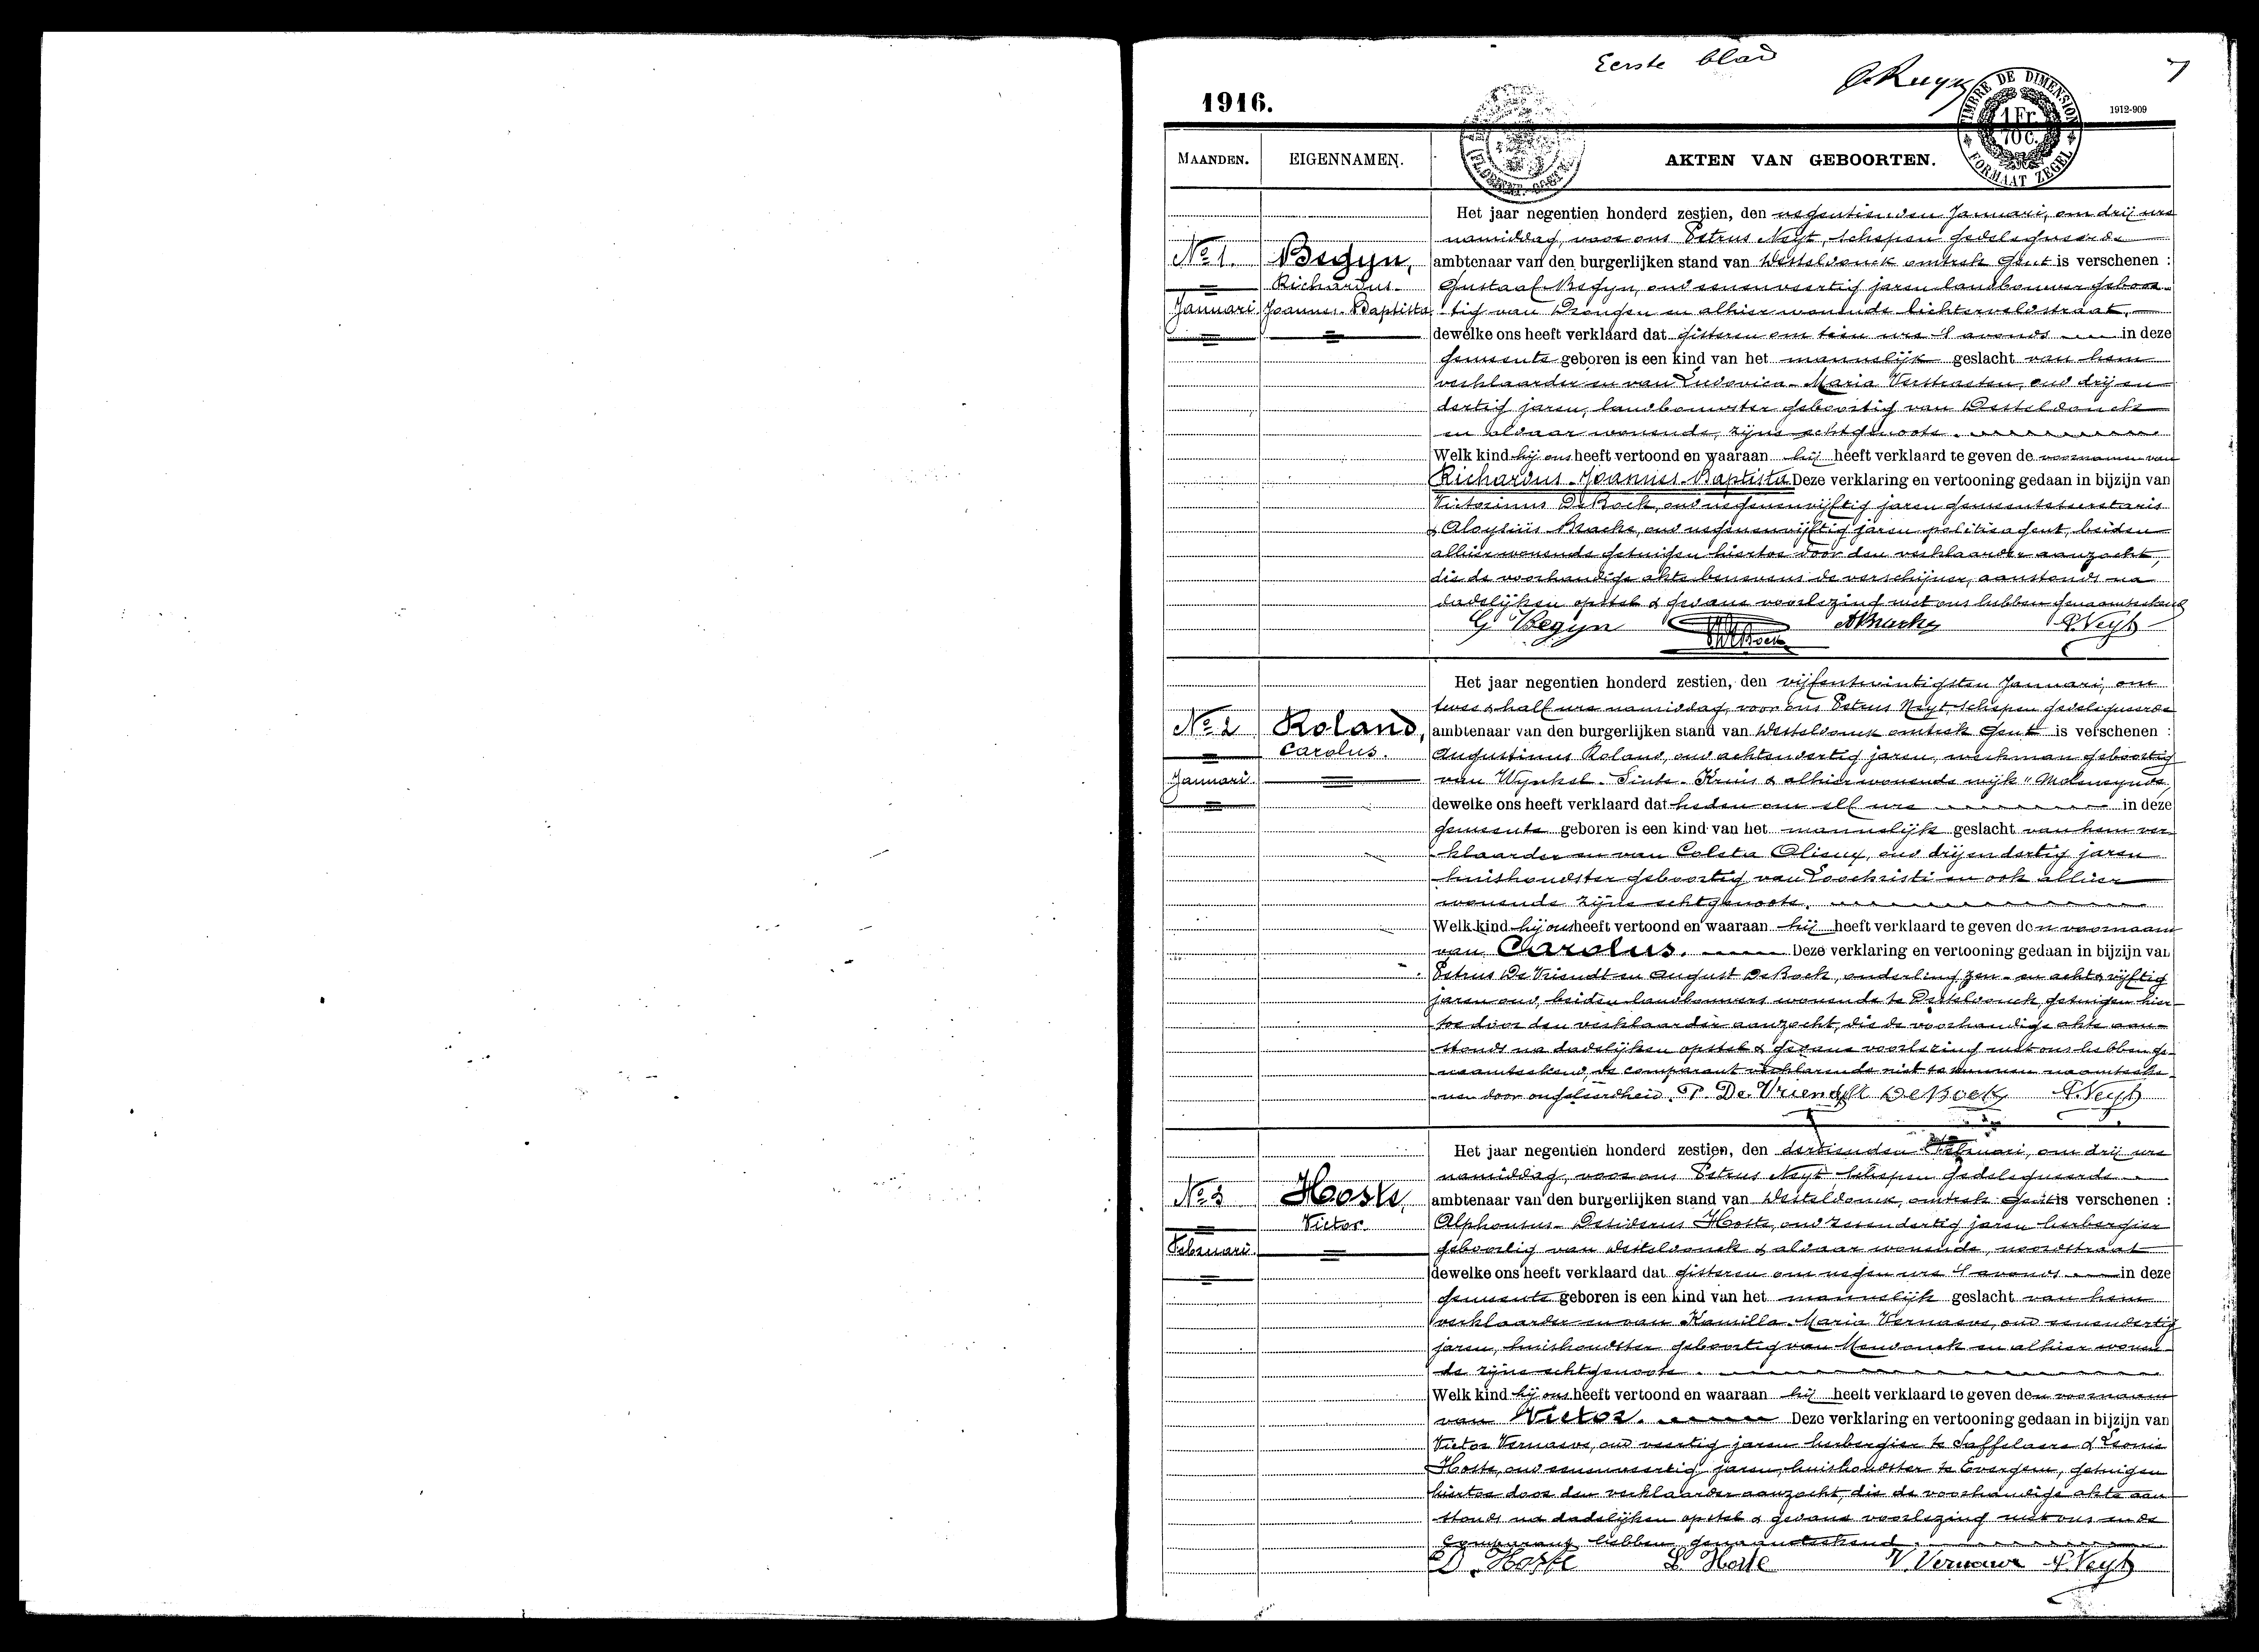 Eerste blad
1916.
1912-909
TIMBRE DE DIMENSION
1 Fr.
10 c.
FORMAAT ZEGEL
MAANDEN. EIGENNAMEN. AKTEN VAN GEBOORTEN.
Het jaar negentien honderd zestien, den negentienden Januari, om drij ure
namiddag, voor ons Petrus Neyt, schepen gedelegueerde
No 1. Begyn, ambtenaar van den burgerlijken stand van Desteldonck omtrek Gent is verschenen :
Richardus Gustaaf Begyn, oud eenenveertig jaren landbouwer geboor-
Januari Joannes-Baptista tig van Drongen en alhier wonende lichterveldstraat,
dewelke ons heeft verklaard dat gisteren om tien ure 's avonds in deze
gemeente geboren is een kind van het mannelijk geslacht van hem
verklaarder en van Ludovica-Maria Verstraeten, oud drij en
dertig jaren, landbouwster geboortig van Desteldonck
en aldaar wonende, zijne echtgenoote.
Welk kind hij ons heeft vertoond en waaraan hij heeft verklaard te geven de voornamen van
Richardus-Joannes-Baptista Deze verklaring en vertooning gedaan in bijzijn van
Victorinus De Bock, oud negenenvijftig jaren gemeentesecretaris
& Aloysius Bracke, oud negenenvijftig jaren politieagent, beiden
alhier wonende getuigen hiertoe door den verklaarder aanzocht,
die de voorhandige akte benevens de verschijner, aanstonds na
dadelijken opstel & gedane voorlezing met ons hebben genaamteekend
G Begyn DeBock ABracke P. Neyt
Het jaar negentien honderd zestien, den vijfentwintigsten Januari, om
twee & half ure namiddag, voor ons Petrus Neyt, schepen gedelegueerde
No 2 Roland, ambtenaar van den burgerlijken stand van Desteldonck omtrek Gent is verschenen :
Carolus. Augustinus Roland, oud achtendertig jaren, werkman geboortig
Januari van Wynkel-Sinte-Kruis & alhier wonende wijk "Moleneynde
dewelke ons heeft verklaard dat heden om elf ure in deze
gemeente geboren is een kind van het mannelijk geslacht van hem ver-
klaarder en van Coleta Olieux, oud drijendertig jaren
huishoudster geboortig van Loochristi en ook alhier
wonende zijne echtgenoote.
Welk kind hij ons heeft vertoond en waaraan hij heeft verklaard te geven den voornaam
van Carolus. Deze verklaring en vertooning gedaan in bijzijn van
Petrus De Vriendt en August De Bock, onderling zes- en acht & vijftig
jaren oud, beiden landbouwers wonende te Desteldonck, getuigen hier-
toe door den verklaarder aanzocht, die de voorhandige akte aan-
stonds na dadelijken opstel & gedane voorlezing met ons hebben ge-
naamteekend, de comparant verklarende niet te kunnen naamteeke-
nen door ongeleerdheid. P. De Vriendt A DeBock P. Neyt
Het jaar negentien honderd zestien, den dertienden Februari, om drij ure
namiddag, voor ons Petrus Neyt schepen gedelegueerde
No 3 Hoste, ambtenaar van den burgerlijken stand van Desteldonck, omtrek Gent is verschenen :
Victor. Alphonsus-Desiderius Hoste, oud zesendertig jaren herbergier
Februari. geboortig van Desteldonck & aldaar wonende, noordstraat
dewelke ons heeft verklaard dat gisteren om negen ure 's avonds in deze
gemeente geboren is een kind van het mannelijk geslacht van hem
verklaarder en van Kamilla-Maria Vernaeve, oud eenendertig
jaren, huishoudster geboortig van Mendonck en alhier wonen-
de zijne echtgenoote.
Welk kind hij ons heeft vertoond en waaraan hij heeft verklaard te geven den voornaam
van Victor. Deze verklaring en vertooning gedaan in bijzijn van
Victor Vernaeve, oud veertig jaren herbergier te Saffelaere & Leonie
Hoste, oud eenenveertig jaren, huishoudster te Evergem, getuigen
hiertoe door den verklaarder aanzocht, die de voorhandige akte aan
stonds na dadelijken opstel & gedane voorlezing met ons en de
Comparant hebben genaamteekend.
D. Hoste L Hoste V. Vernaeve P. Neyt